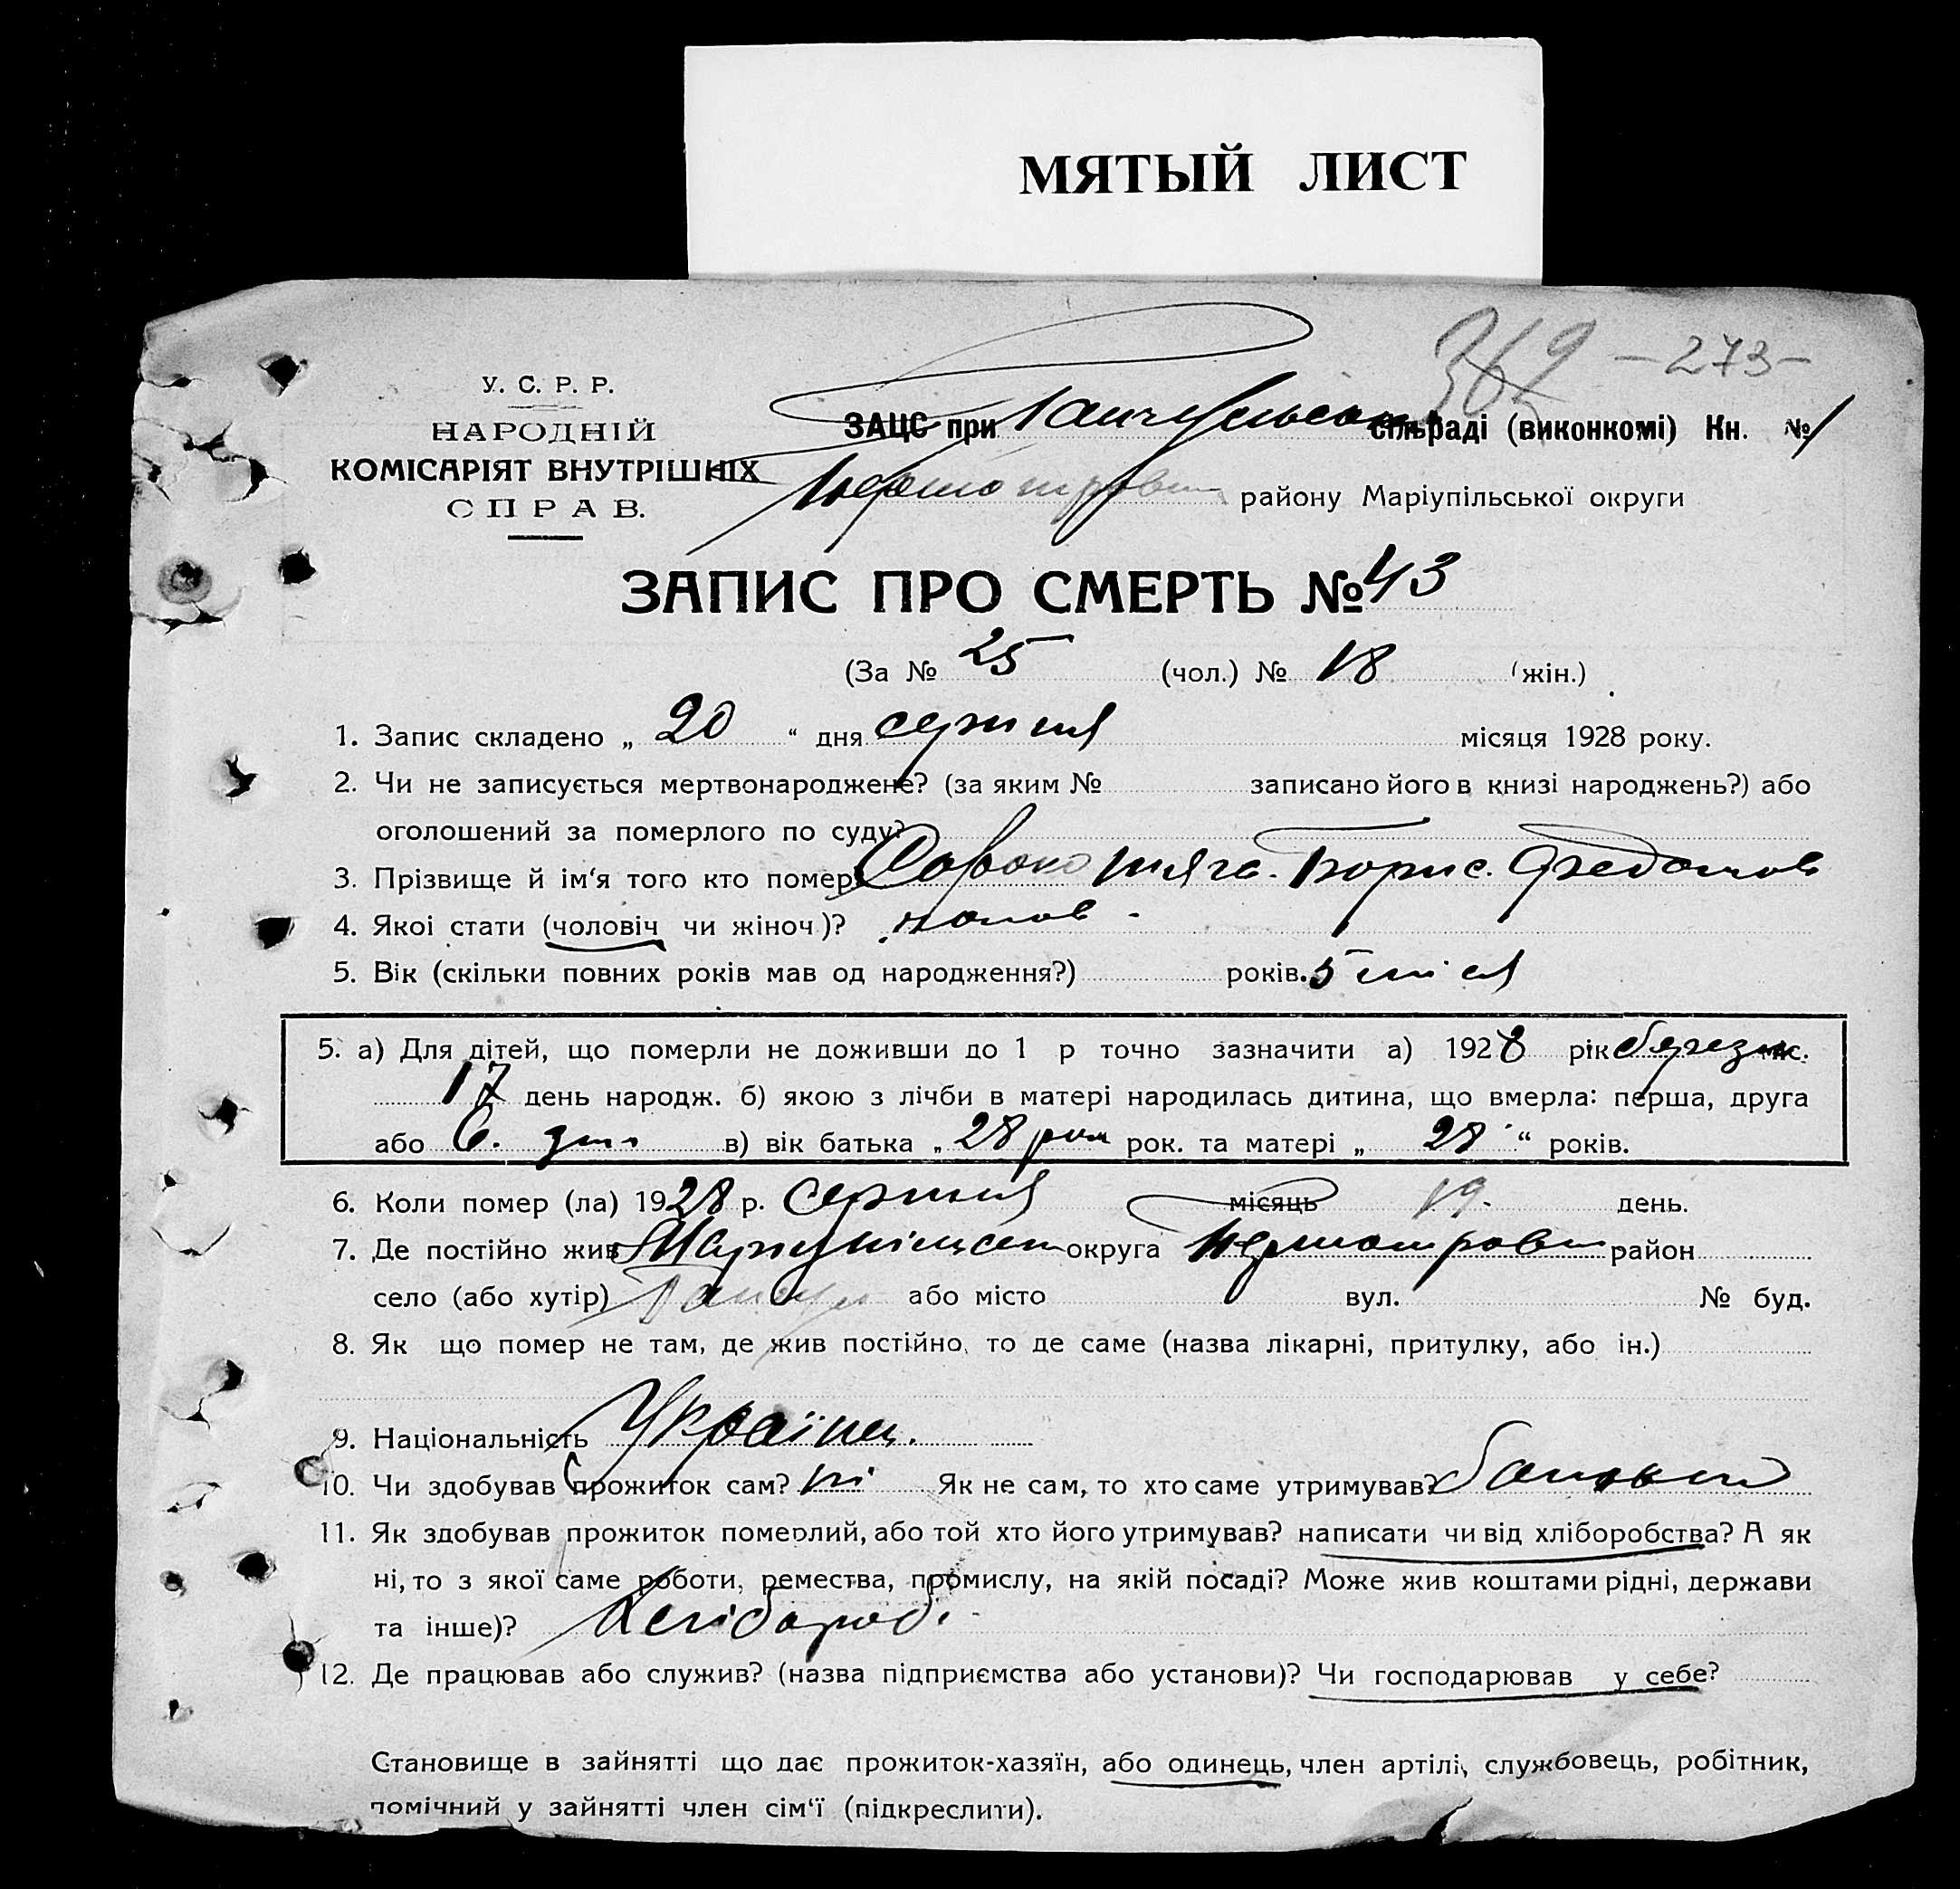 МЯТЫЙ ЛИСТ
362 - 273 -
У. С. Р. Р.
НАРОДНІЙ
КОМІСАРІЯТ ВНУТРІШНІХ
СПРАВ.
ЗАЦС при сільраді (виконкомі) Кн. № 1
району Маріупільської округи
ЗАПИС ПРО СМЕРТЬ № 43
(За № 25 (чол.) № 18 (жін.)
1. Запис складено „ 20 “ дня серпня місяця 1928 року.
2. Чи не записується мертвонароджене? (за яким № записано його в книзі народжень?) або
оголошений за померлого по суду?
3. Прізвище й ім'я того кто помер Сорокотяга. Борис. Федотов
4. Якої стати (чоловіч чи жіноч)? чолов -
5. Вік (скільки повних років мав од народження?) років. 5 міся
5. а) Для дітей, що померли не доживши до 1 р точно зазначити а) 1928 рік березн міс.
17 день народж. б) якою з лічби в матері народилась дитина, що вмерла: перша, друга
або 6. в) вік батька „ 28 рок. та матері „ 28 “ років.
6. Коли помер (ла) 1928 р. серпня місяць 19. день.
7. Де постійно жив округа район
село (або хутір) або місто вул. № буд.
8. Як що помер не там, де жив постійно, то де саме (назва лікарні, притулку, або ін.)
9. Національність Українец.
10. Чи здобував прожиток сам? ні Як не сам, то хто саме утримував? батьки
11. Як здобував прожиток померлий, або той хто його утримував? написати чи від хліборобства? А як
ні, то з якої саме роботи, ремества, промислу, на якій посаді? Може жив коштами рідні, держави
та інше)? Хлібороб.
12. Де працював або служив? (назва підприємства або установи)? Чи господарював у себе?
Становище в зайнятті що дає прожиток-хазяїн, або одинець, член артілі, службовець, робітник,
помічний у зайнятті член сім'ї (підкреслити).